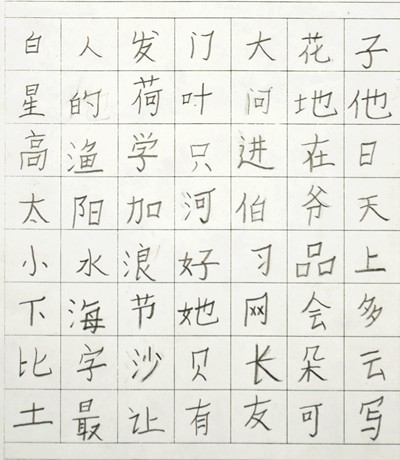 白人发门大花子
星的荷叶问地他
高渔学只进在日
太阳加河伯爷天
小水浪好习品上
下海节她网会多
比字沙贝长朵云
土最让有友可写